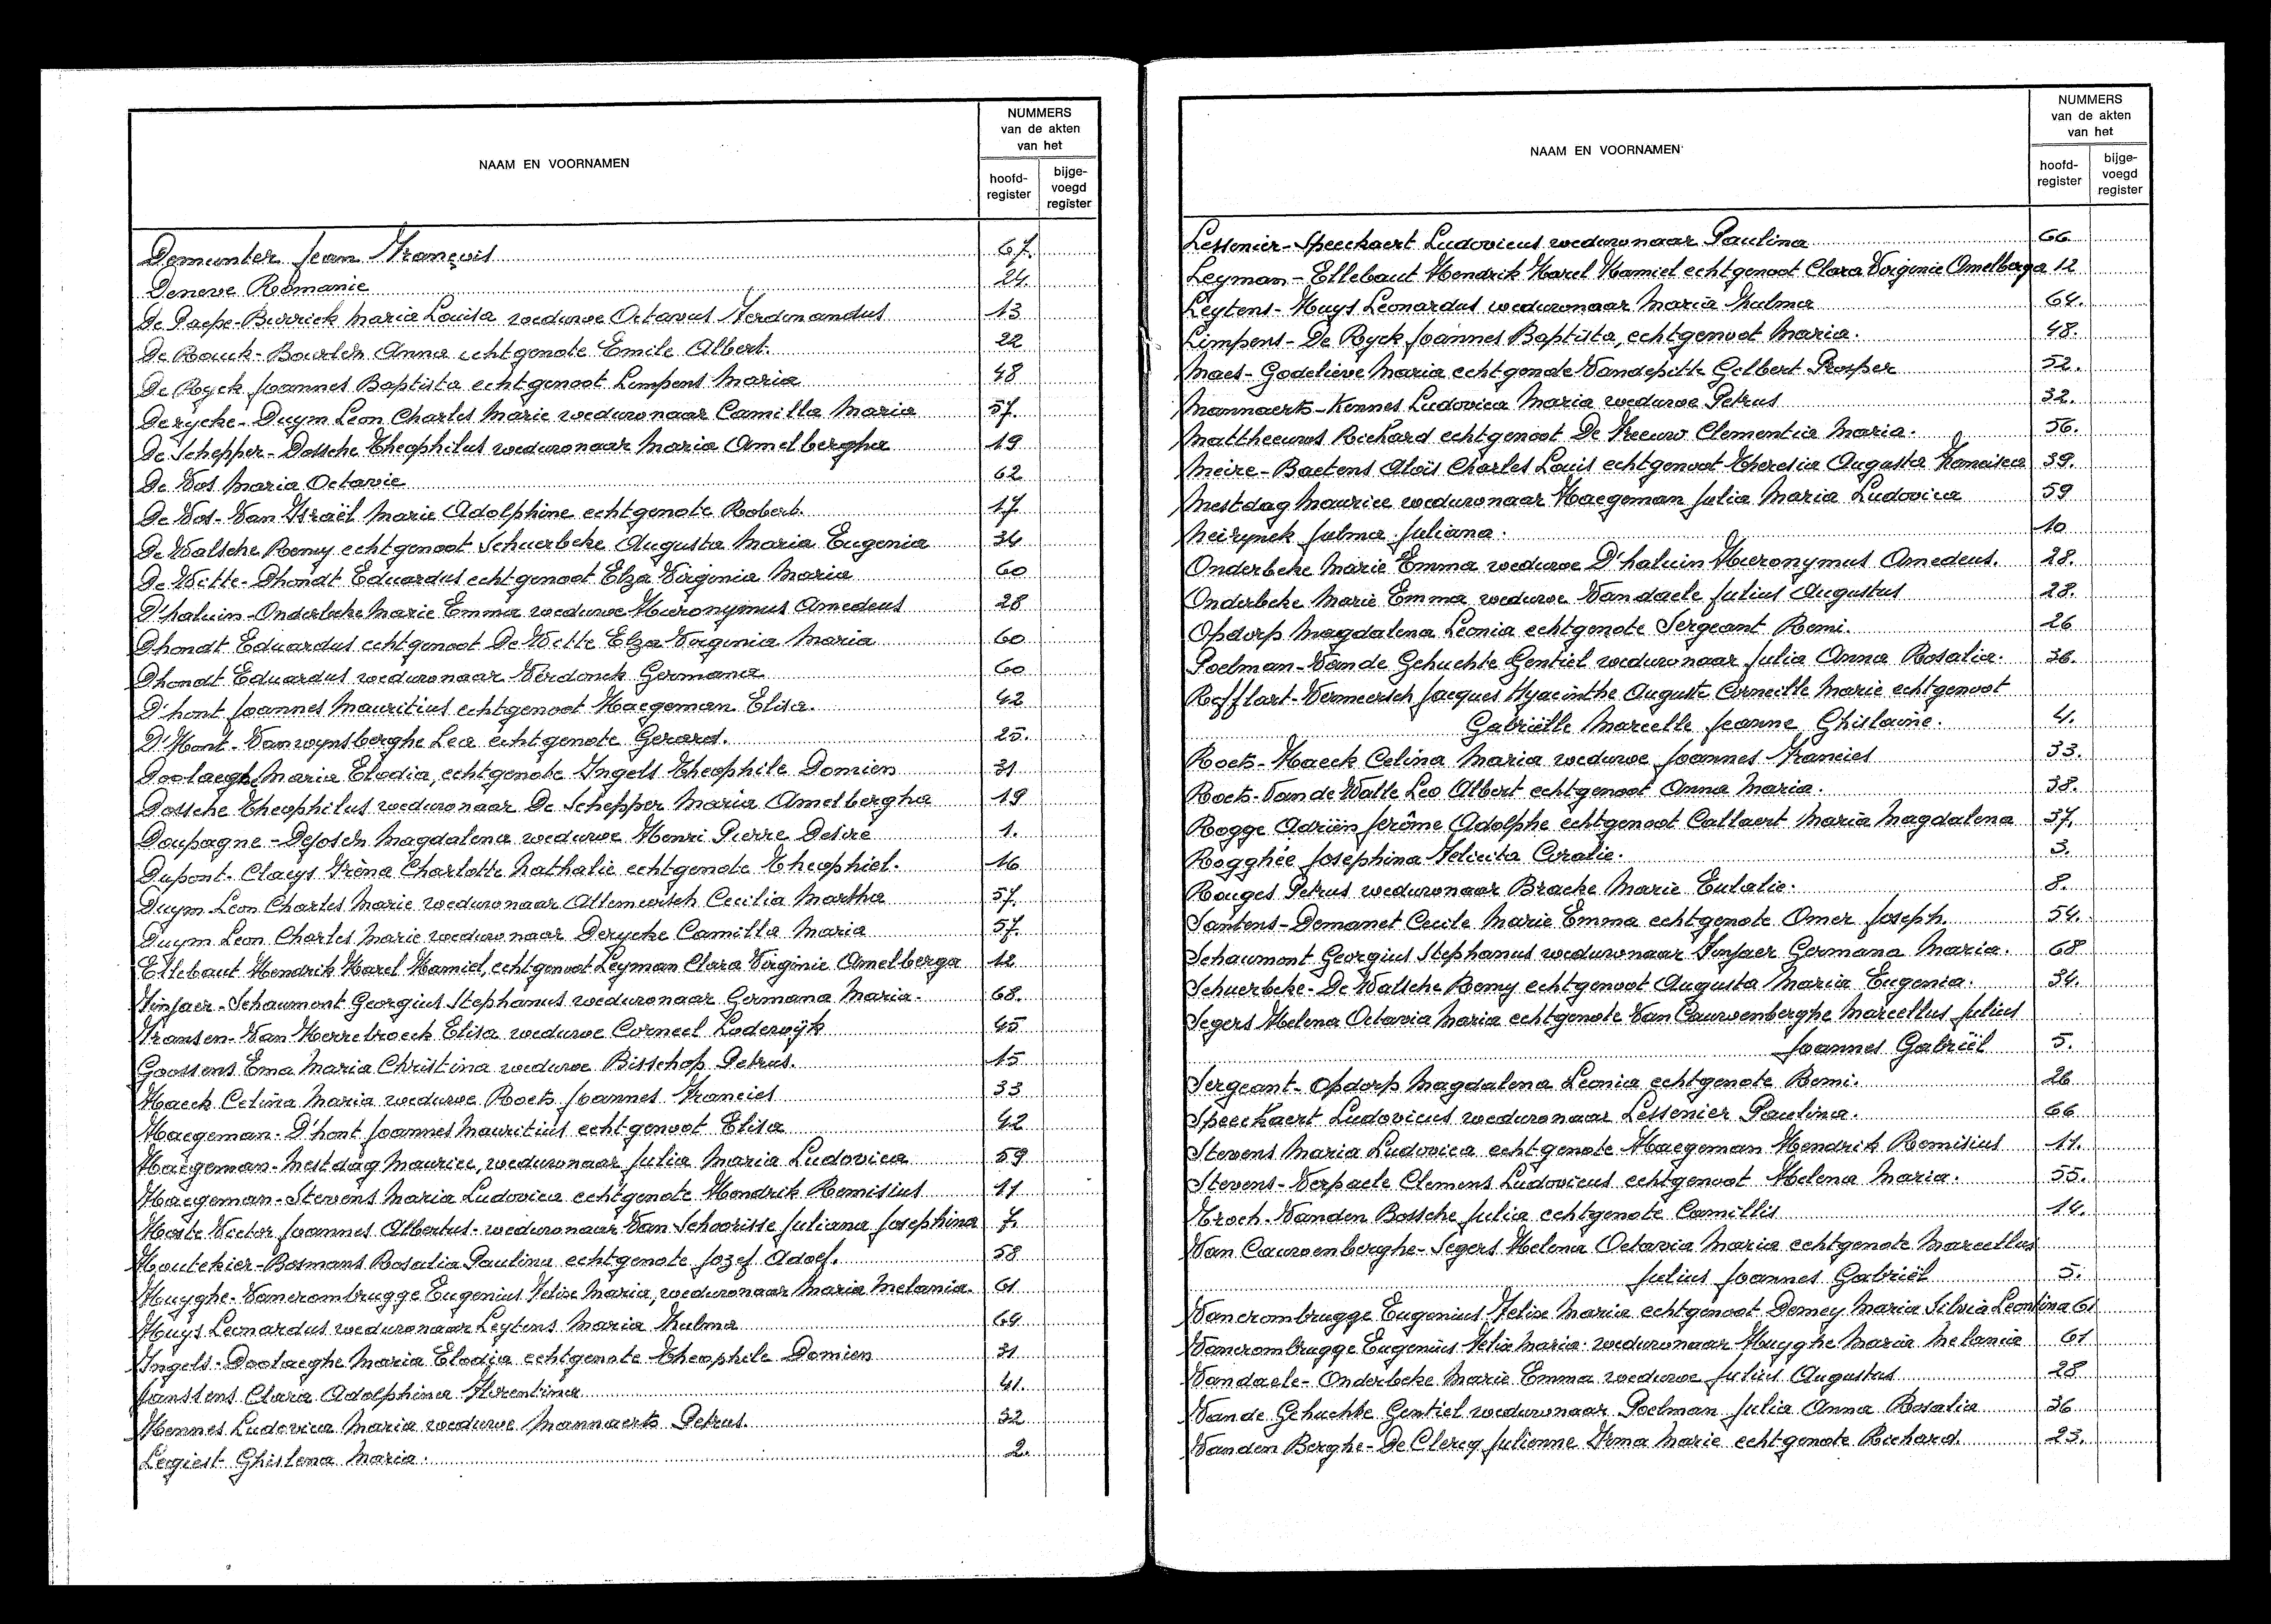 NAAM EN VOORNAMEN
NUMMERS
van de akten
van het
hoofd-
register
bijge-
voegd
register
Demunter Jean François 67.
Deneve Romanie 24.
De Paepe-Burrick Maria Louisa weduwe Octavus Ferdinandus 13
De Rouck-Bourlès Anna echtgenote Emile Albert. 22
De Ryck Joannes Baptista echtgenoot Limpens Maria 48
Derycke-Duym Leon Charles Marie weduwnaar Camilla Maria 57.
De Schepper-Dossche Theophilus weduwnaar Maria Amelbergha 19
De Vos Maria Octavie 62
De Vos-Van Israël Marie Adolphine echtgenote Robert. 17
De Walsche Remy echtgenoot Schuerbeke Augusta Maria Eugenia 34
De Witte-Dhondt Eduardus echtgenoot Elza Virginia Maria 60
D'haluin-Onderbeke Marie Emma weduwe Hieronymus Amedeus 28
Dhondt Eduardus echtgenoot De Witte Elza Virginia Maria 60
Dhondt Eduardus weduwnaar Verdonck Germana 60
D'hont Joannes Mauritius echtgenoot Haegeman Elisa. 42
D'Hont-Vanwynsberghe Lea echtgenote Gerard. 25.
Doolaeghe Maria Elodia, echtgenote Ingels Theophile Domien 31
Dossche Theophilus weduwnaar De Schepper Maria Amelbergha 19
Doupagne-Dejosez Magdalena weduwe Henri Pierre Desiré 1.
Dupont-Claeys Irèna Charlotte Nathalie echtgenote Theophiel. 16
Duym Leon Charles Marie weduwnaar Allemeersch Cecilia Martha 57.
Duym Leon Charles Marie weduwnaar Derycke Camilla Maria 57.
Ellebaut Hendrik Karel Kamiel, echtgenoot Leyman Clara Virginie Amelberga 12
Finjaer-Schaumont Georgius Stephanus weduwnaar Germana Maria. 68.
Fransen-Van Herrebroeck Elisa weduwe Corneel Lodewijk 45
Goossens Ema Maria Christina weduwe Bisschop Petrus. 15
Haeck Celina Maria weduwe Roets Joannes Francies 33
Haegeman-D'hont Joannes Mauritius echtgenoot Elisa 42
Haegeman-Mestdag Maurice, weduwnaar Julia Maria Ludovica 59
Haegeman-Stevens Maria Ludovica echtgenote Hendrik Remisius 11
Hoste Victor Joannes Albertus. weduwnaar Van Schoorisse Juliana Josephina 7.
Houtekier-Bosmans Rosalia Paulina echtgenote Jozef Adolf. 58
Huyghe-Vancrombrugge Eugenius Felix Maria, weduwnaar Maria Melania. 61
Huys Leonardus weduwnaar Leytens Maria Zulma 64
Ingels-Doolaeghe Maria Elodia echtgenote Theophile Domien 31
Janssens Claria Adolphina Florentina 41.
Kennes Ludovica Maria weduwe Mannaerts Petrus. 32
Legiest Ghislena Maria. 2.
NAAM EN VOORNAMEN
NUMMERS
van de akten
van het
hoofd-
register
bijge-
voegd
register
Lessenier-Speeckaert Ludovicus weduwnaar Paulina 66
Leyman-Ellebaut Hendrik Karel Kamiel echtgenoot Clara Virginie Amelberga 12
Leytens-Huys Leonardus weduwnaar Maria Zulma 64.
Limpens-De Ryck Joannes Baptista, echtgenoot Maria. 48.
Maes-Godelieve Maria echtgenote Vandepitte Gelbert Prosper 52.
Mannaerts-Kennes Ludovica Maria weduwe Petrus 32.
Mattheeuws Richard echtgenoot De Vreeuw Clementia Maria. 56.
Meire-Baetens Aloïs Charles Louis echtgenoot Theresia Augusta Francisca 39.
Mestdag Maurice weduwnaar Haegeman Julia Maria Ludovica 59
Neirynck Julma Juliana. 10
Onderbeke Marie Emma weduwe D'haluin Hieronymus Amedeus. 28.
Onderbeke Marie Emma weduwe Vandaele Julius Augustus 28.
Opdorp Magdalena Leonia echtgenote Sergeant Remi. 26
Poelman-Van de Gehuchte Gentiel weduwnaar Julia Anna Rosalia. 36.
Refflart-Vermeersch Jacques Hyacinthe Auguste Corneille Marie echtgenoot
Gabriëlle Marcelle Jeanne Ghislaine. 4.
Roets-Haeck Celina Maria weduwe Joannes Francies 33.
Roets-Van de Walle Leo Albert echtgenoot Anna Maria. 38.
Rogge Adriën Jerôme Adolphe echtgenoot Callaert Maria Magdalena 37.
Rogghée Josephina Felicita Coralie. 3.
Rouges Petrus weduwnaar Bracke Marie Eulalie. 8.
Santens-Demanet Cecile Marie Emma echtgenote Omer Joseph. 54.
Schaumont Georgius Stephanus weduwnaar Finjaer Germana Maria. 68
Schuerbeke-De Walsche Remy echtgenoot Augusta Maria Eugenia. 34.
Segers Helena Octavia Maria echtgenote Van Cauwenberghe Marcellus Julius
Joannes Gabriël 5.
Sergeant-Opdorp Magdalena Leonia echtgenote Remi. 26
Speeckaert Ludovicus weduwnaar Lessenier Paulina. 66
Stevens Maria Ludovica echtgenote Haegeman Hendrik Remisius 11.
Stevens-Verpaele Clemens Ludovicus echtgenoot Helena Maria. 55.
Troch-Vanden Bossche Julia echtgenote Camillis 14.
Van Cauwenberghe-Segers Helena Octavia Maria echtgenote Marcellus
Julius Joannes Gabriël 5.
Vancrombrugge Eugenius Felix Maria echtgenoot Domey Maria Silvia Leontina 61
Vancrombrugge Eugenius Felix Maria. weduwnaar Huyghe Maria Melania 61
Vandaele-Onderbeke Marie Emma weduwe Julius Augustus 28
Van de Gehuchte Gentiel weduwnaar Poelman Julia Anna Rosalia 36
Vanden Berghe-De Clercq Julienne Irma Marie echtgenote Richard. 23.